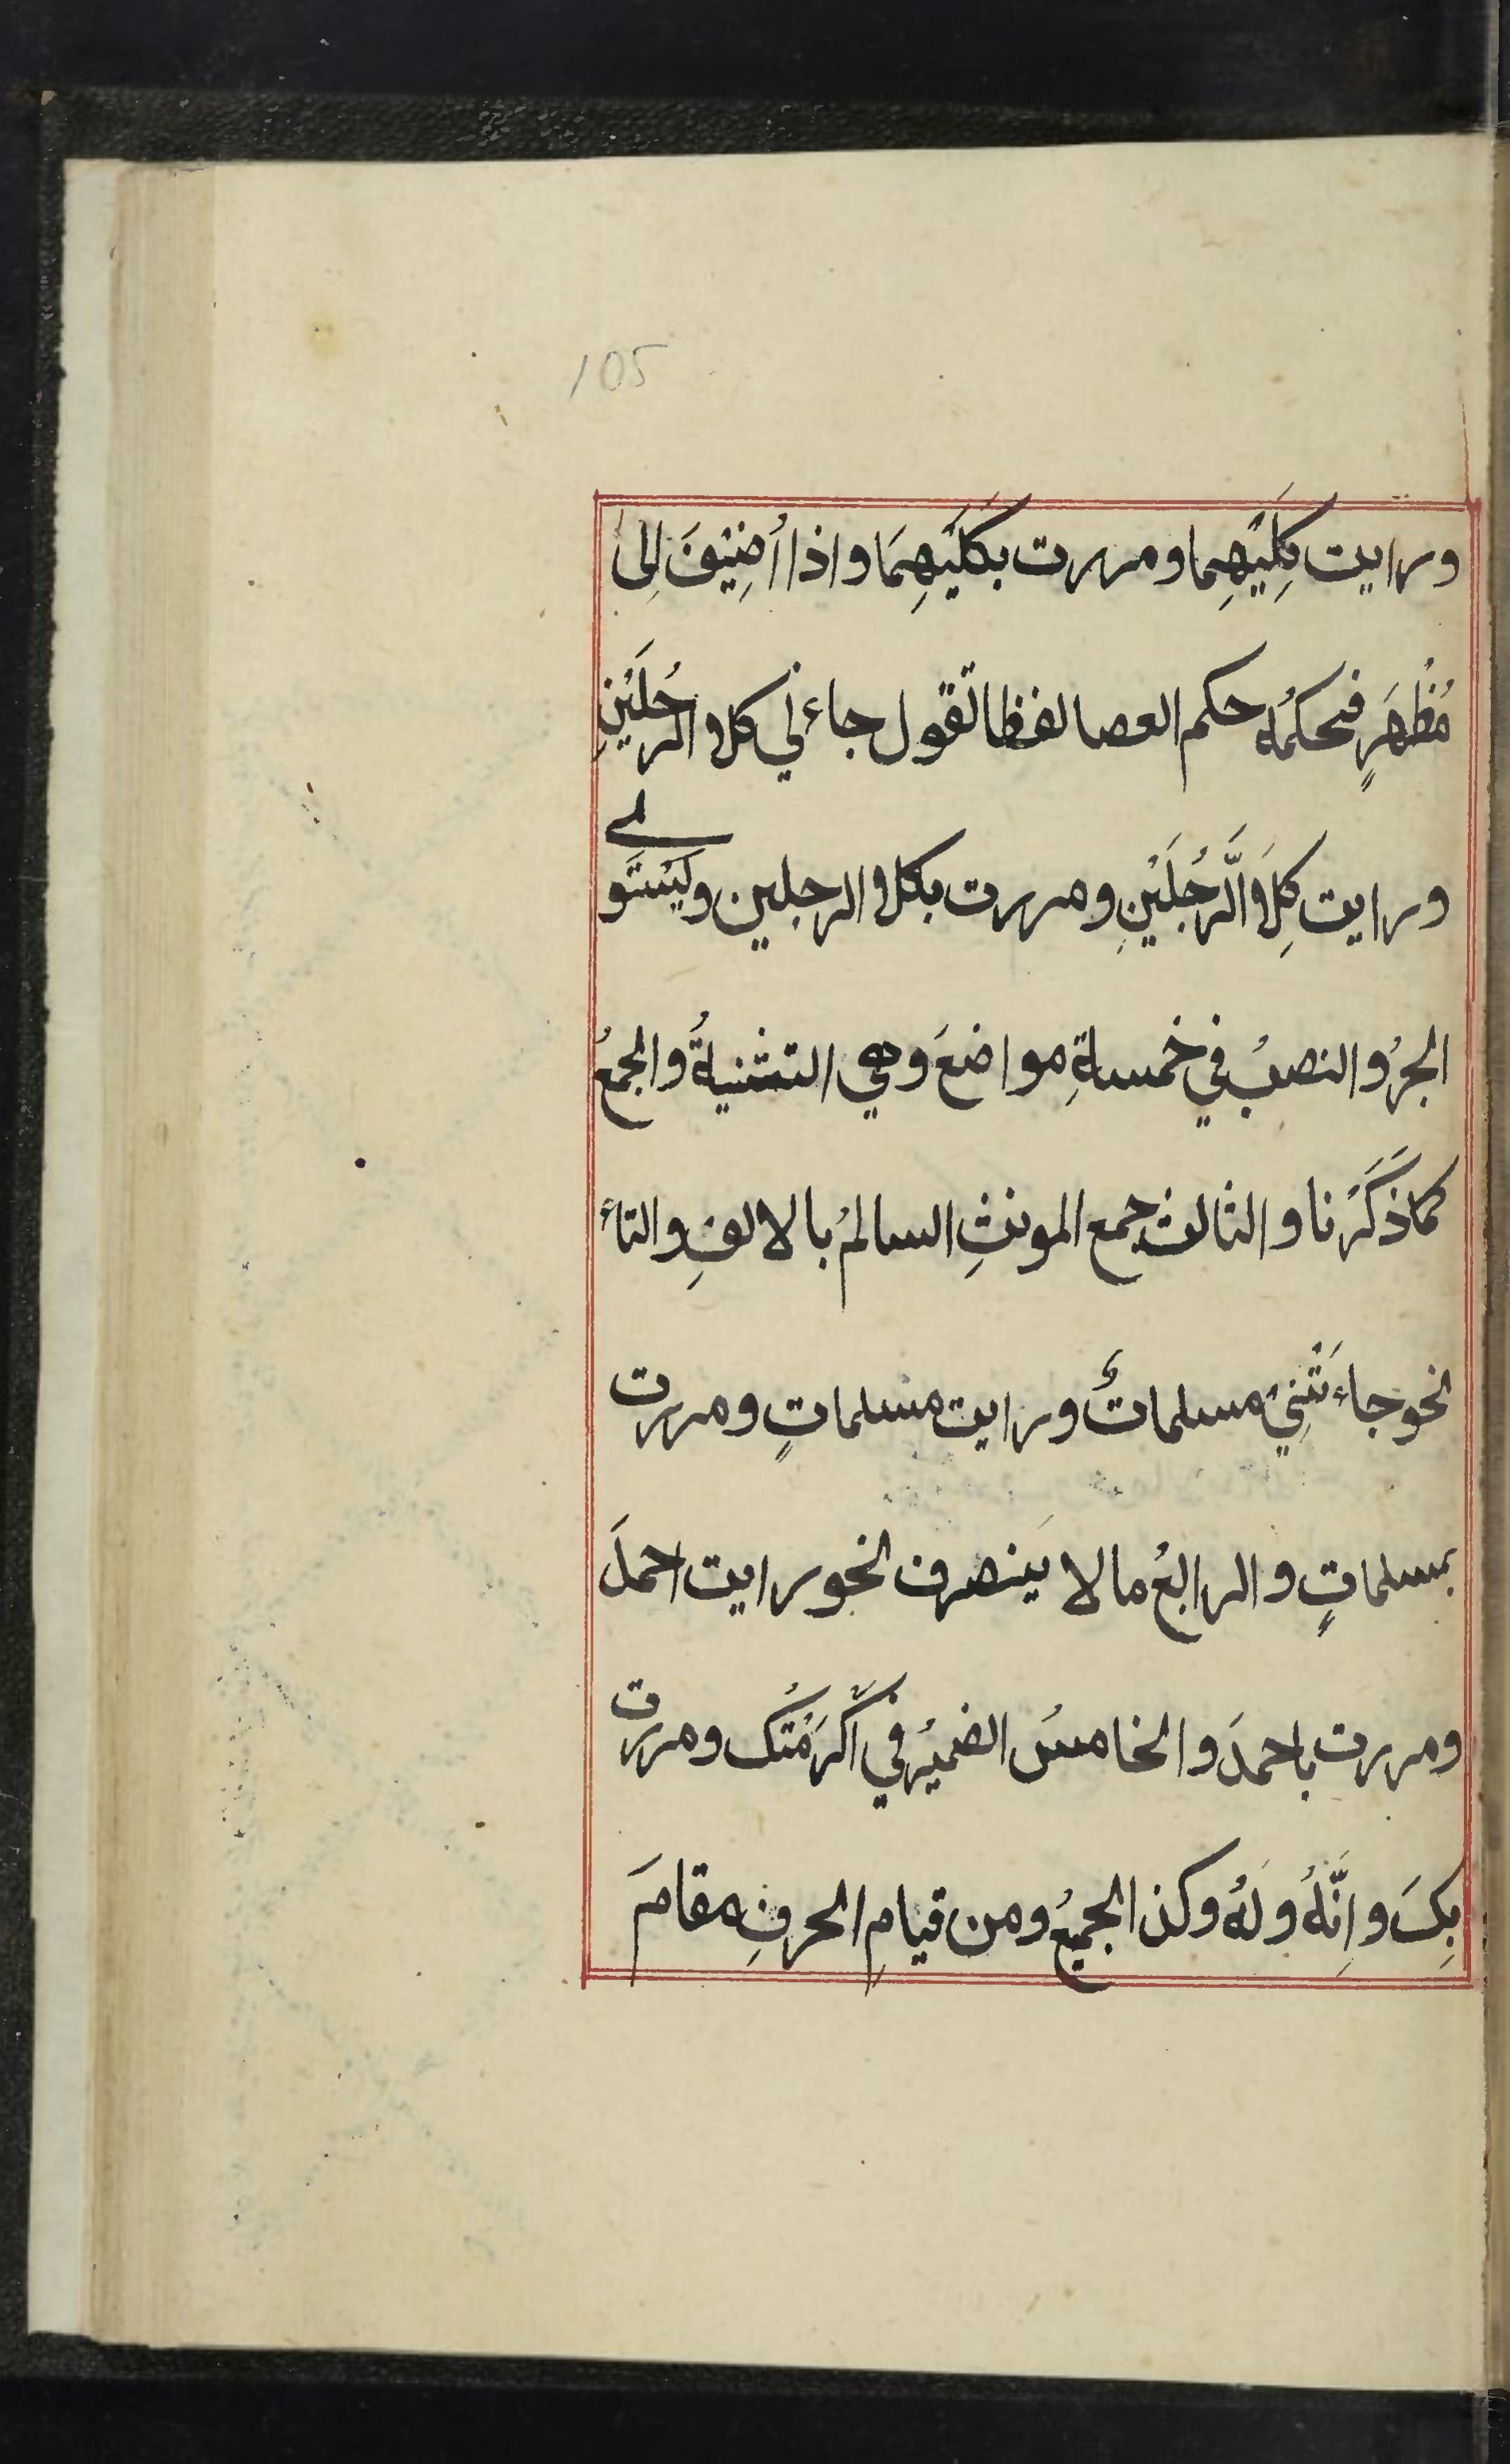 105
ورايت كِلَيْهِما ومررت بكلَيْهِمَا واذا أُضِيْفَ اِلىٰ
مُظْهَرٍ فحكمُه حكم العصا لفظا تقول جاءني كلا الرجُلَيْنِ
ورايت كِلَا الَّرجُلَيْنِ ومررت بكلا الرجلين ويَسْتَوي
الجرُ والنصبُ في خمسةِ مواضعَ وهي التثنيةُ والجمعُ
كما ذَكَرْنا والثالث جمع المونثِ السالمُ بالالفِ والتاء
نحو جاءَتْنِيْ مسلماتٌ ورايت مسلماتٍ ومررت
بمسلماتٍ والرابعُ ما لا يَنصرف نحو رايت احمدَ
ومررت باحمدَ والخامسُ الضميْرُ في اَكْرَمْتُك ومررت
بِكَ وانَّهُ ولَهُ وكذا الجميعُ ومن قيامِ الحرفِ مقامَ